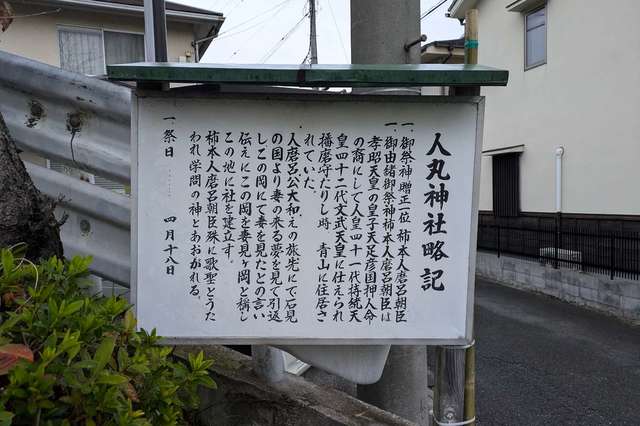 人丸神社略記
一、御祭神贈正一位 柿本人磨呂朝臣
一、御由緒御祭神柿本人磨呂朝臣は
孝昭天皇の皇子天足彦国押人命
の裔にして人皇四十一代持統天
皇四十二代文武天皇に仕えられ
播磨守たりし時 青山に住居さ
れていた。
人磨呂公大和えの旅先にて石見
の国より妻の来る夢を見て引返
しこの岡にて妻を見たとの言い
伝えにこの岡を妻見ヶ岡と称し
この地に社を建立す。
柿本人磨呂朝臣殊に歌聖とうた
われ学問の神とあおがれる。
一、祭日 …… 四月十八日